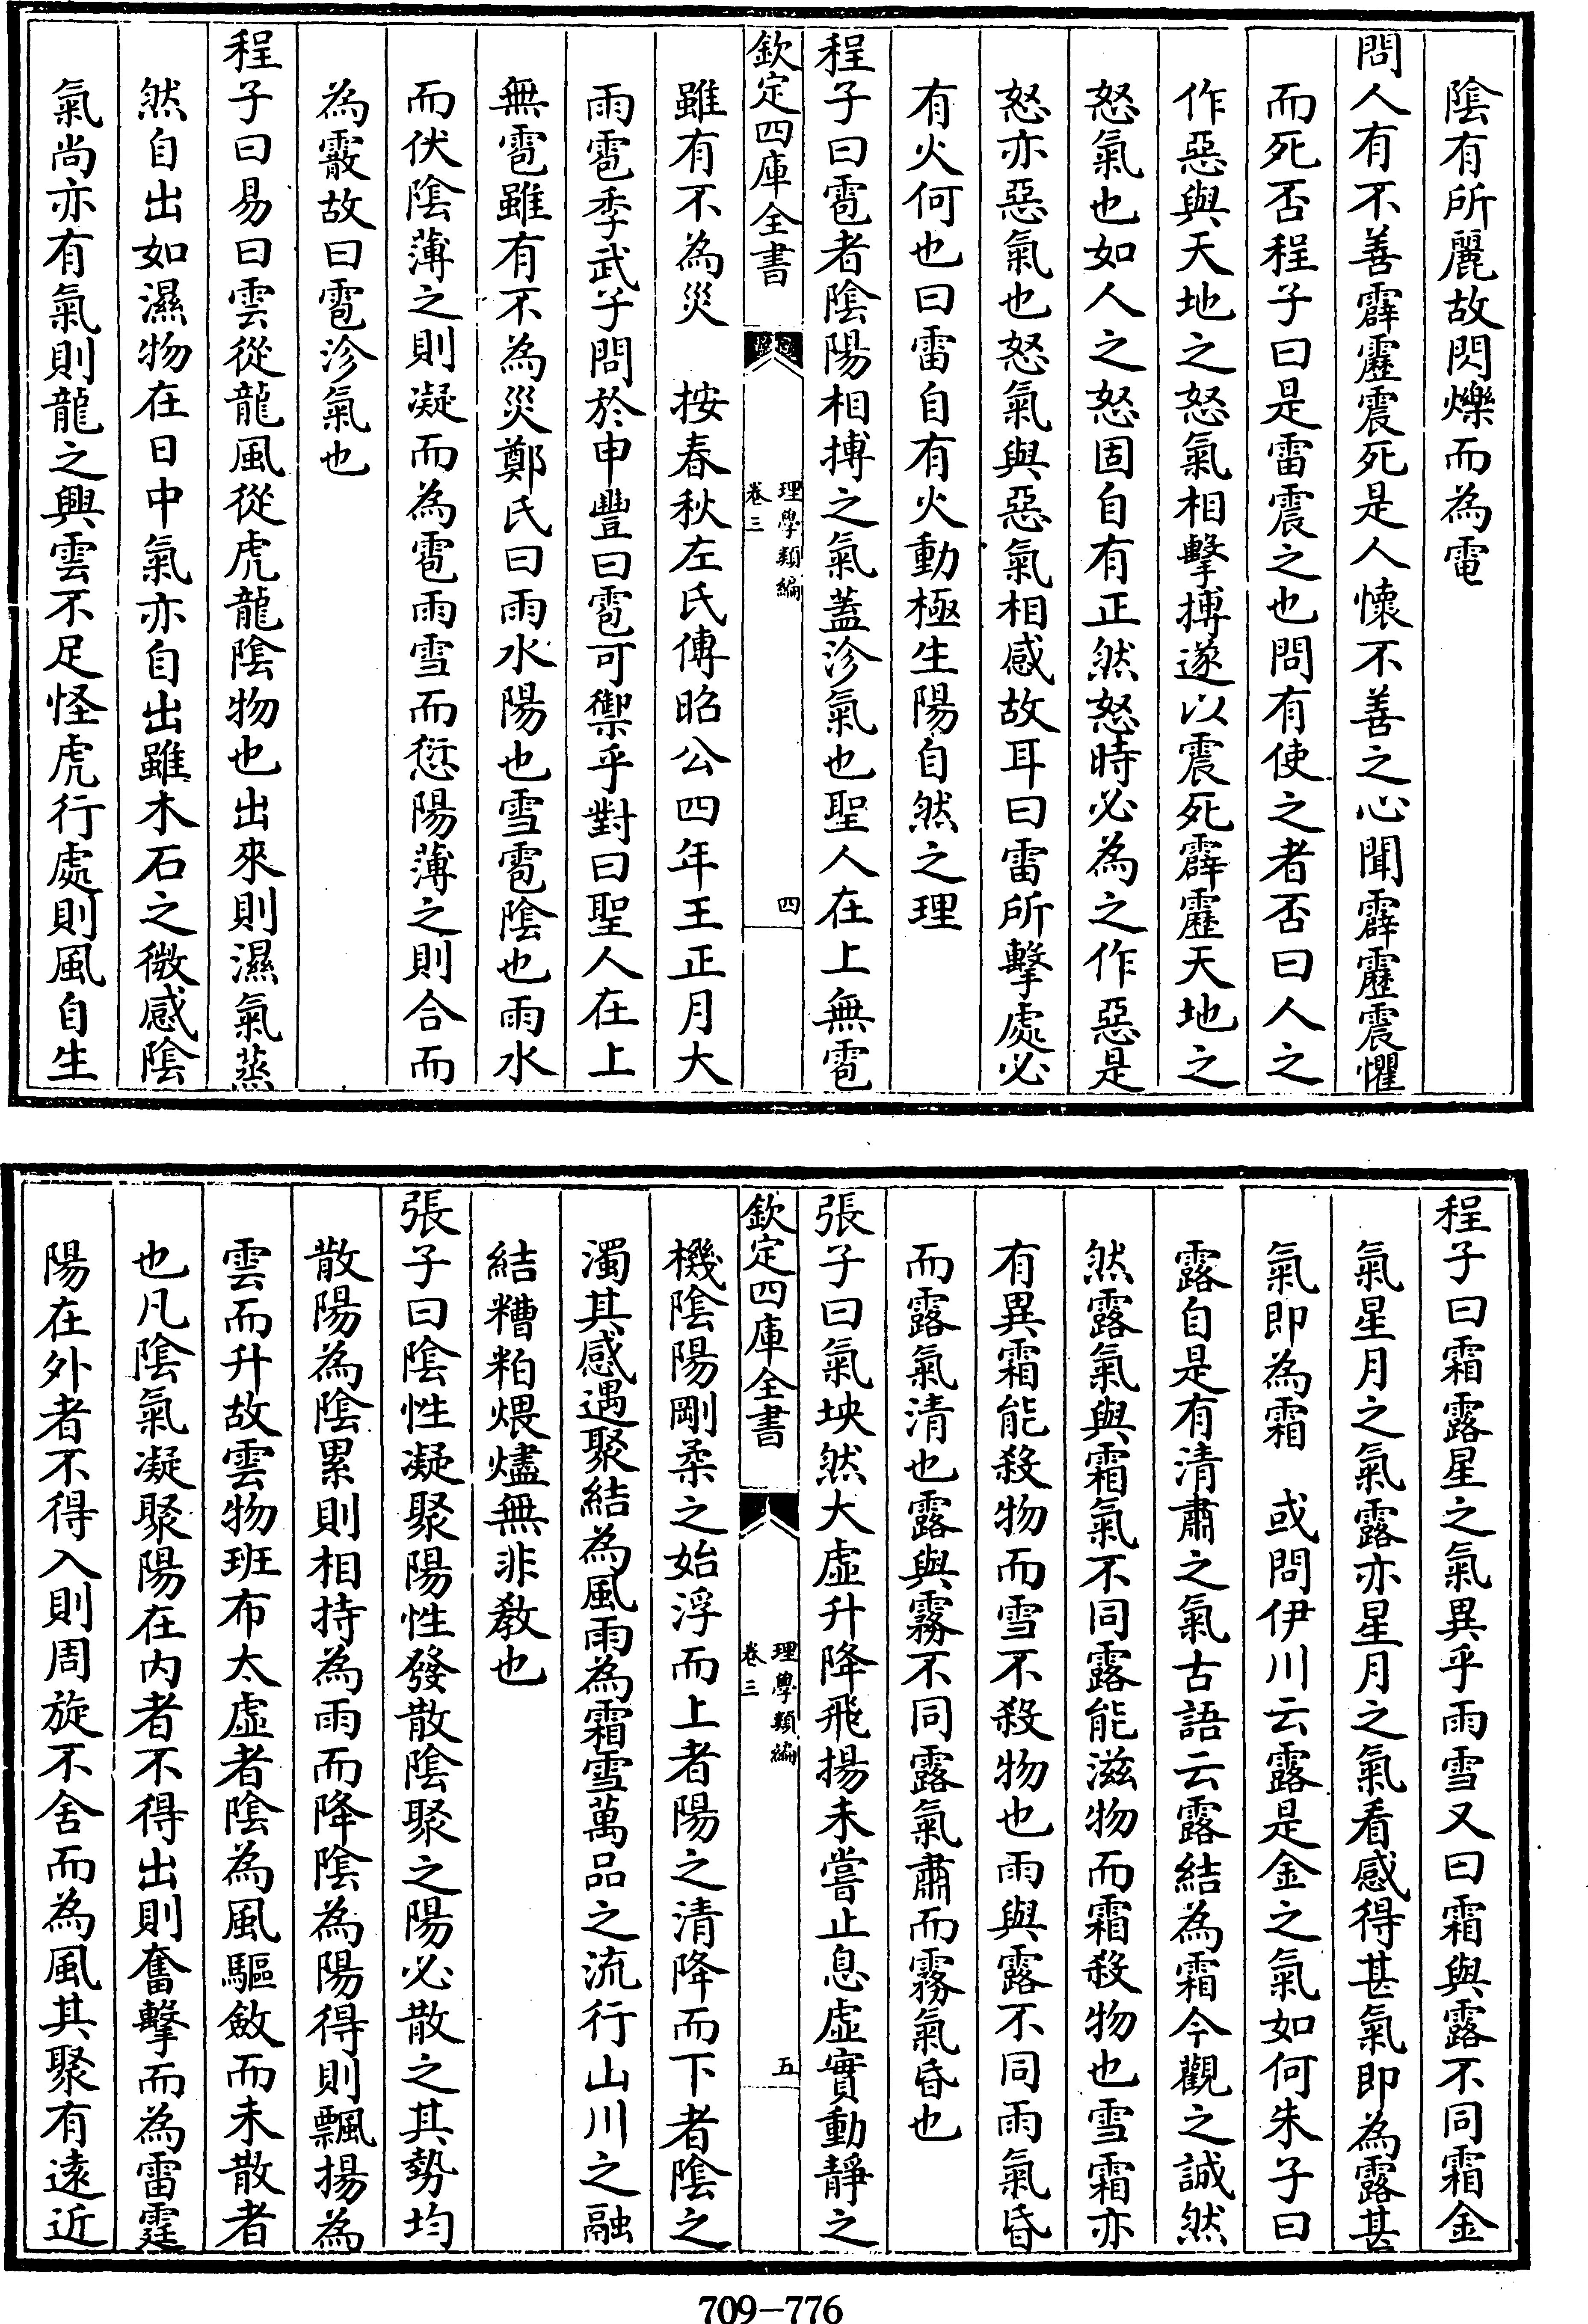 陰有所麗故閃爍而為電
問人有不善霹靂震死是人懷不善之心聞霹靂震懼
而死否程子曰是雷震之也問有使之者否曰人之
作惡與天地之怒氣相擊搏遂以震死霹靂天地之
怒氣也如人之怒固自有正然怒時必為之作惡是
怒亦惡氣也怒氣與惡氣相感故耳曰雷所擊處必
有火何也曰雷自有火動極生陽自然之理
程子曰雹者陰陽相搏之氣蓋沴氣也聖人在上無雹
欽定四庫全書
理學類編
卷三
四
雖有不為災　按春秋左氏傳昭公四年王正月大
雨雹季武子問於申豐曰雹可禦乎對曰聖人在上
無雹雖有不為災鄭氏曰雨水陽也雪雹陰也雨水
而伏陰薄之則凝而為雹雨雪而愆陽薄之則合而
為霰故曰雹沴氣也
程子曰易曰雲從龍風從虎龍陰物也出來則濕氣蒸
然自出如濕物在日中氣亦自出雖木石之微感陰
氣尚亦有氣則龍之興雲不足怪虎行處則風自生
程子曰霜露星之氣異乎雨雪又曰霜與露不同霜金
氣星月之氣露亦星月之氣看感得甚氣即為露甚
氣即為霜　或問伊川云露是金之氣如何朱子曰
露自是有清肅之氣古語云露結為霜今觀之誠然
然露氣與霜氣不同露能滋物而霜殺物也雪霜亦
有異霜能殺物而雪不殺物也雨與露不同雨氣昏
而露氣清也露與霧不同露氣肅而霧氣昏也
張子曰氣坱然大虛升降飛揚未嘗止息虛實動靜之
欽定四庫全書
理學類編
卷三
五
機陰陽剛柔之始浮而上者陽之清降而下者陰之
濁其感遇聚結為風雨為霜雪萬品之流行山川之融
結糟粕煨燼無非教也
張子曰陰性凝聚陽性發散陰聚之陽必散之其勢均
散陽為陰累則相持為雨而降陰為陽得則飄揚為
雲而升故雲物班布太虛者陰為風驅斂而未散者
也凡陰氣凝聚陽在內者不得出則奮擊而為雷霆
陽在外者不得入則周旋不舍而為風其聚有遠近
709-776